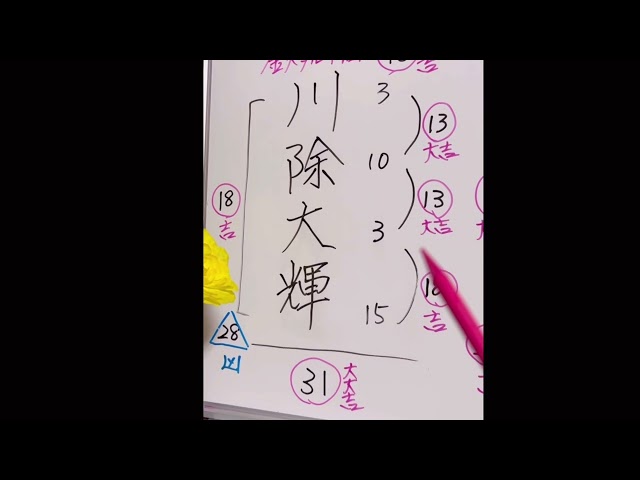 川 3
13
大吉
除 10
18
吉
13
大吉
大 3
18
吉
輝 15
28
凶
31
大大吉